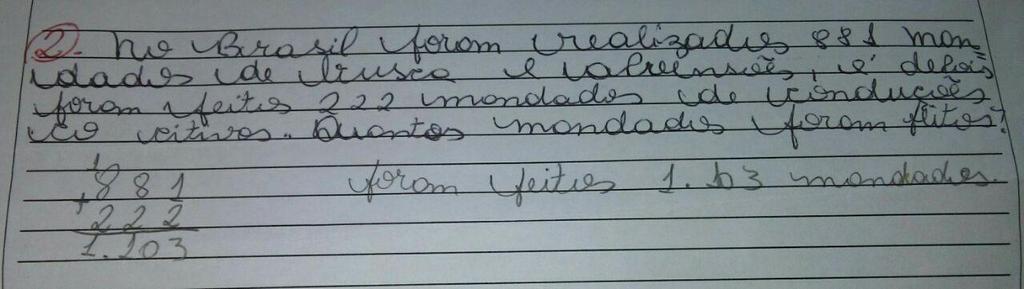 2. No Brasil foram realizados 881 man
dados de busca e apreensões, e depois
foram feitos 222 mandados de conduções
co eitivos. Quantos mandados foram feitos?
1
881 foram feitos 1.103 mandados.
+
222
1.103